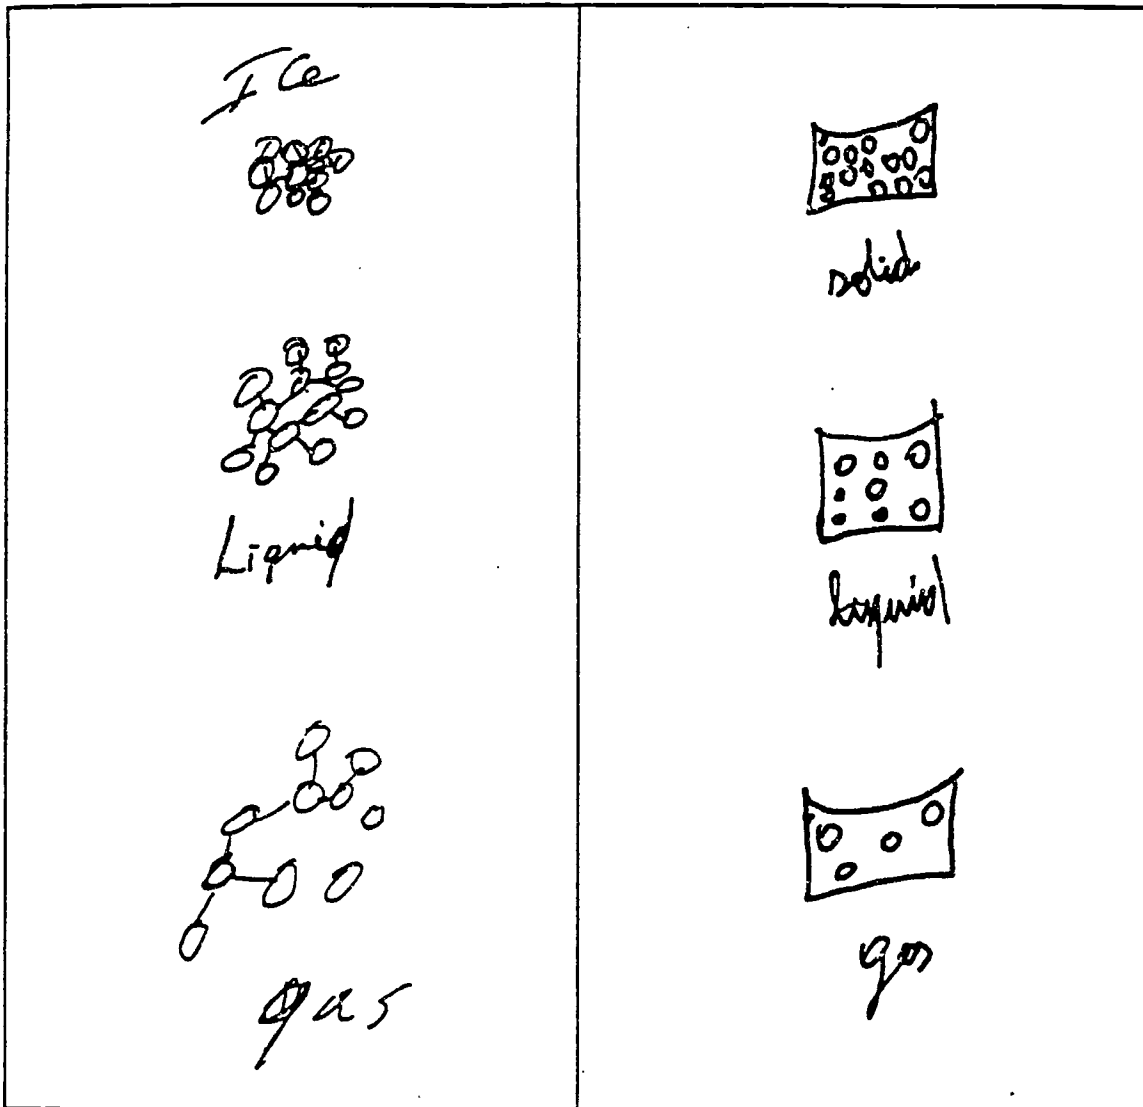 Ice
Liquid
gas
solid
Liquid
gas